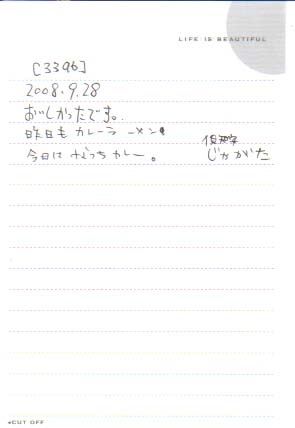 LIFE IS BEAUTIFUL
[3396]
2008.9.28
おいしかったです。
昨日もカレーラーメン
今日はなっちカレー。
じゃがた
CUT OFF